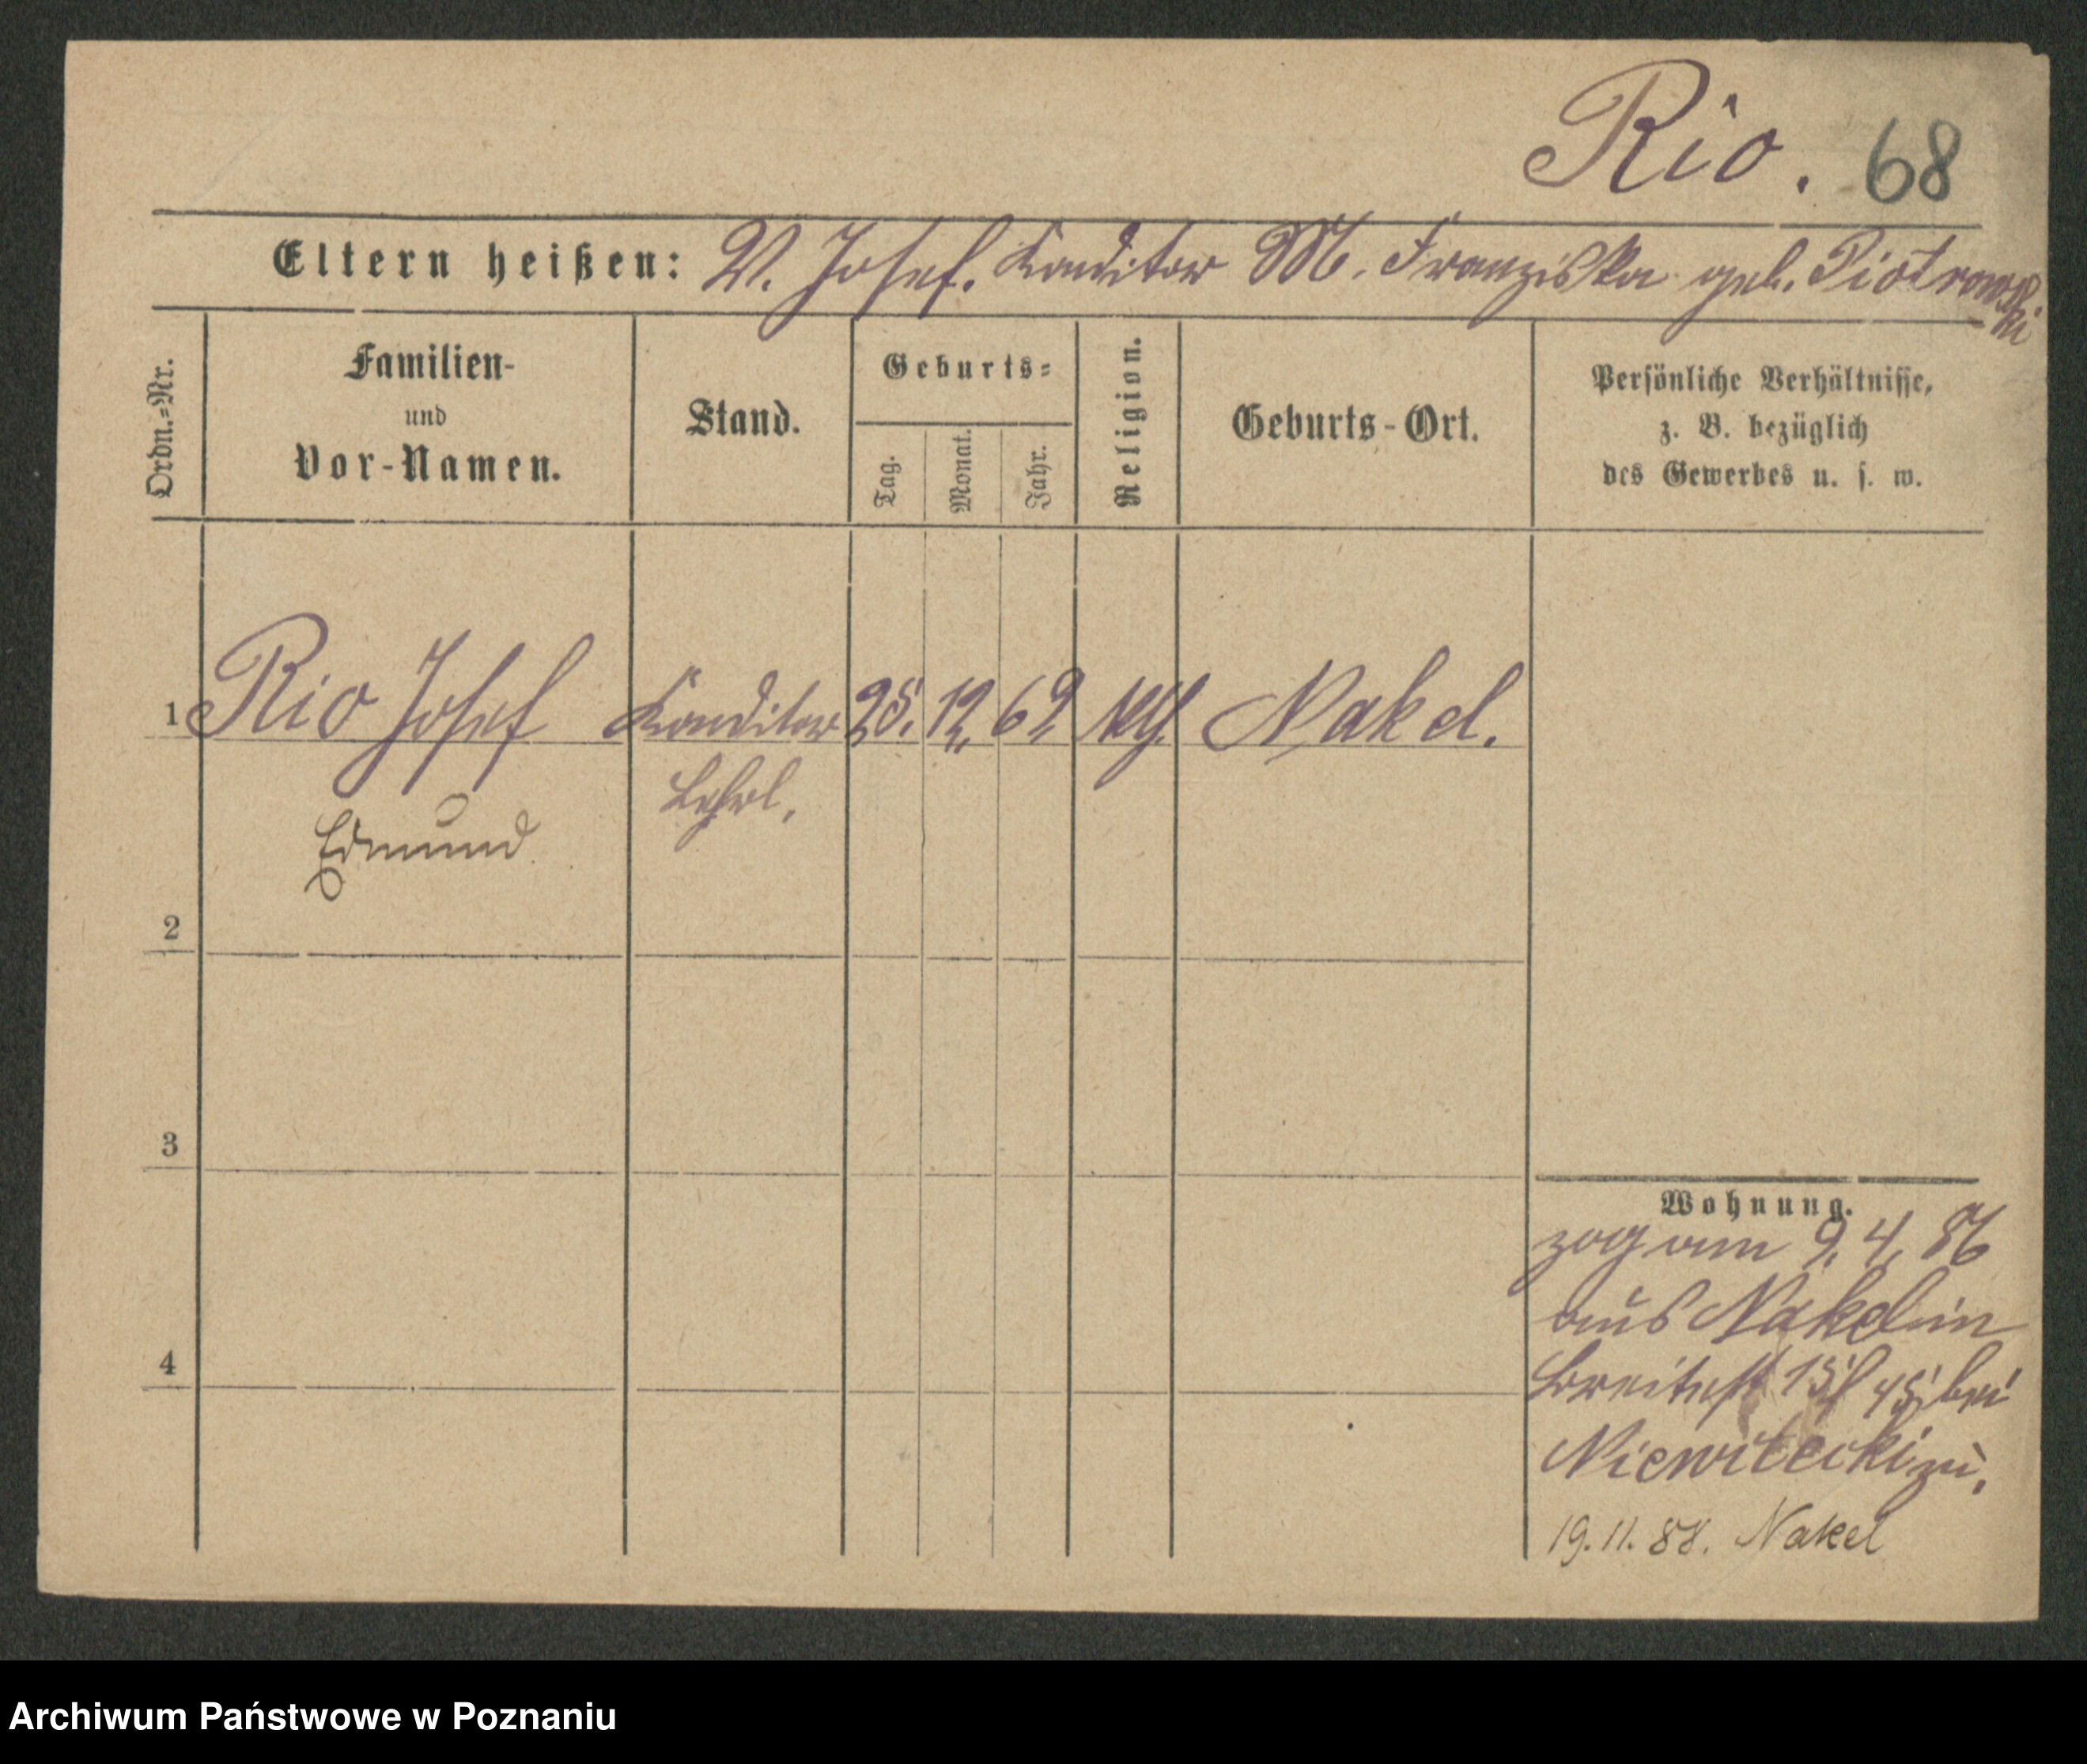 Rio. 68
Eltern heißen: V. Josef. Konditor M. Franziska geb. Piotrowski
Ordn.=Nr.
Familien-
und
Vor-Namen.
Stand.
Geburts=
Tag.
Monat.
Jahr.
Religion.
Geburts-Ort.
Persönliche Verhältnisse,
z. B. bezüglich
des Gewerbes u. s. w.
1 Rio Josef Konditor 25. 12. 69 Nakel.
Lehrl.
Edmund
2
3
4
Wohnung.
zog am 9. 4. 86
aus Nakel in
Breitestr 15/ bei
Niewitecki zu.
19. 11. 88. Nakel
Archiwum Państwowe w Poznaniu